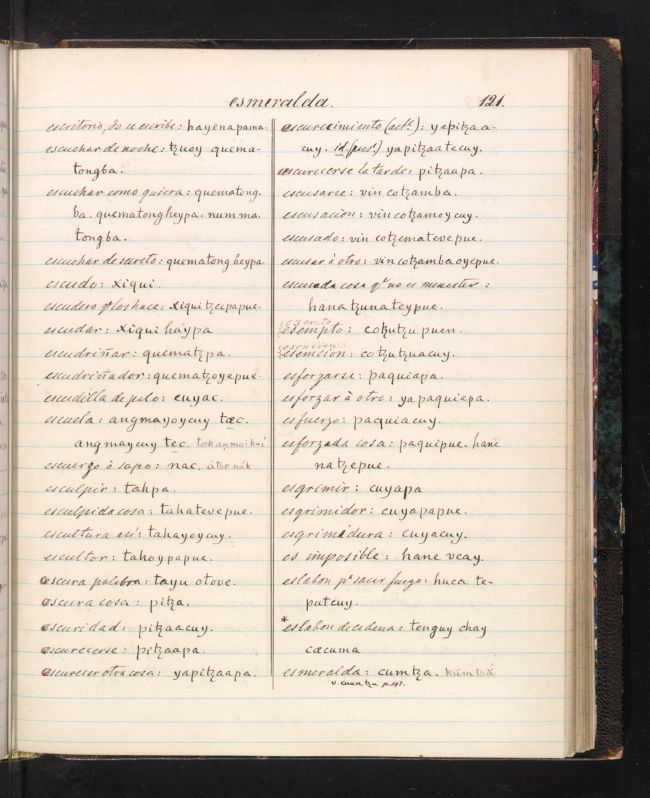 esmeralda.
121.
escritorio, do se escribe: hayenapama.
escuchar de noche: tzuoy quema-
tongba.
escuchar como quiera: quematong-
ba. quematongheypa. num ma.
tongba.
escuchar de secreto: quematongheypa.
escudo: xiqui.
escudero q. los hace: xiqui tzecpapue.
escudar: xiqui haypa
escudriñar: quematzpa.
escudriñador: quematzoyepue.
escudilla de palo: cuyac.
escuela: angmayoycuy tæc.
angmaycuy tec.
escuerzo ò sapo: nac.
esculpir: tahpa.
esculpida cosa: tahatevepue.
escultura asi: tahayoycuy.
escultor: tahoypapue.
escura palabra: tayu otove.
escura cosa: pitza.
escuridad: pitzaacuy.
escurecerse: pitzaapa.
escurecer otra cosa: yapitzaapa.
escurecimiento (act.): yapitzaa-
cuy. id. (pas.) yapitzaatecuy.
escurecerse la tarde: pitzaapa.
escusarse: vin cotzamba.
escusacion: vin cotzamoycuy.
escusado: vin cotzematevepue.
escusar à otro: vin cotzambaoyepue.
escusada cosa q. no es menester:
hanatzunateypue.
exento
esempto: cotzutzu puen.
exencion
esemcion: cotzutzuacuy.
esforzarse: paquiapa.
esforzar à otro: yapaquiapa.
esfuerzo: paquiacuy.
esforzada cosa: paquipue. hane
natzepue.
esgrimir: cuyapa
esgrimidor: cuyapapue.
esgrimidura: cuyacuy.
es imposible: hane veay.
eslabon pa. sacar fuego: huca te-
putcuy.
*eslabon de cadena: tenguy chay
cæcuma
esmeralda: cumtza.
p. 197.